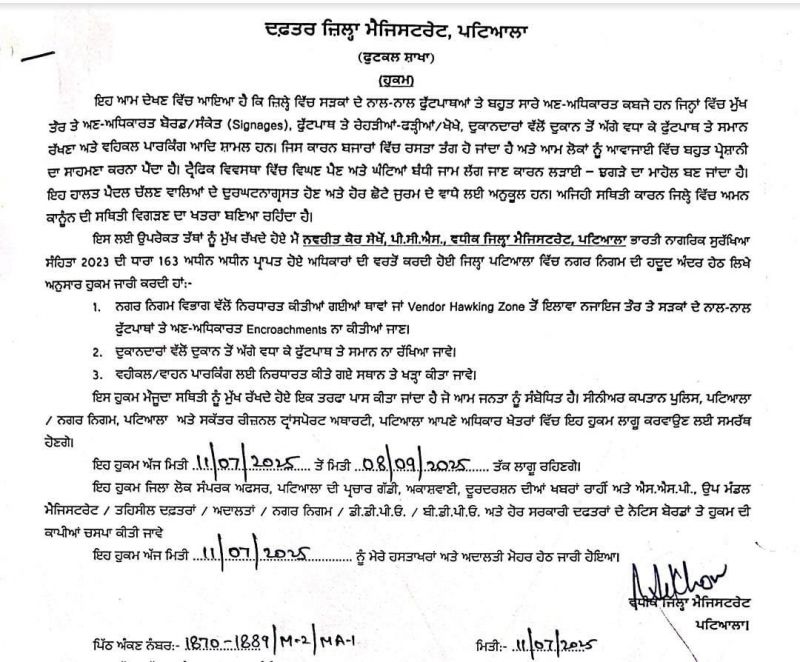 ਦਫ਼ਤਰ ਜ਼ਿਲ੍ਹਾ ਮੈਜਿਸਟਰੇਟ, ਪਟਿਆਲਾ
(ਫੁਟਕਲ ਸ਼ਾਖਾ)
(ਹੁਕਮ)
ਇਹ ਆਮ ਦੇਖਣ ਵਿੱਚ ਆਇਆ ਹੈ ਕਿ ਜ਼ਿਲ੍ਹੇ ਵਿੱਚ ਸੜਕਾਂ ਦੇ ਨਾਲ-ਨਾਲ ਫੁੱਟਪਾਥਾਂ ਤੇ ਬਹੁਤ ਸਾਰੇ ਅਣ-ਅਧਿਕਾਰਤ ਕਬਜੇ ਹਨ ਜਿਨ੍ਹਾਂ ਵਿੱਚ ਮੁੱਖ
ਤੌਰ ਤੇ ਅਣ-ਅਧਿਕਾਰਤ ਬੋਰਡ/ਸੰਕੇਤ (Signages), ਫੁੱਟਪਾਥ ਤੇ ਰੇਹੜੀਆਂ-ਫੜ੍ਹੀਆਂ/ਖੋਖੇ, ਦੁਕਾਨਦਾਰਾਂ ਵੱਲੋਂ ਦੁਕਾਨ ਤੋਂ ਅੱਗੇ ਵਧਾ ਕੇ ਫੁੱਟਪਾਥ ਤੇ ਸਮਾਨ
ਰੱਖਣਾ ਅਤੇ ਵਹਿਕਲ ਪਾਰਕਿੰਗ ਆਦਿ ਸ਼ਾਮਲ ਹਨ। ਜਿਸ ਕਾਰਨ ਬਜਾਰਾਂ ਵਿੱਚ ਰਸਤਾ ਤੰਗ ਹੋ ਜਾਂਦਾ ਹੈ ਅਤੇ ਆਮ ਲੋਕਾਂ ਨੂੰ ਆਵਾਜਾਈ ਵਿੱਚ ਬਹੁਤ ਪ੍ਰੇਸ਼ਾਨੀ
ਦਾ ਸਾਹਮਣਾ ਕਰਨਾ ਪੈਂਦਾ ਹੈ। ਟ੍ਰੈਫਿਕ ਵਿਵਸਥਾ ਵਿੱਚ ਵਿਘਣ ਪੈਣ ਅਤੇ ਘੰਟਿਆਂ ਬੱਧੀ ਜਾਮ ਲੱਗ ਜਾਣ ਕਾਰਨ ਲੜਾਈ – ਝਗੜੇ ਦਾ ਮਾਹੋਲ ਬਣ ਜਾਂਦਾ ਹੈ।
ਇਹ ਹਾਲਤ ਪੈਦਲ ਚੱਲਣ ਵਾਲਿਆਂ ਦੇ ਦੁਰਘਟਨਾਗ੍ਰਸਤ ਹੋਣ ਅਤੇ ਹੋਰ ਛੋਟੇ ਜੁਰਮ ਦੇ ਵਾਧੇ ਲਈ ਅਨੁਕੂਲ ਹਨ। ਅਜਿਹੀ ਸਥਿਤੀ ਕਾਰਨ ਜ਼ਿਲੇ ਵਿੱਚ ਅਮਨ
ਕਾਨੂੰਨ ਦੀ ਸਥਿਤੀ ਵਿਗੜਣ ਦਾ ਖਤਰਾ ਬਣਿਆ ਰਹਿੰਦਾ ਹੈ।
ਇਸ ਲਈ ਉਪਰੋਕਤ ਤੱਥਾਂ ਨੂੰ ਮੁੱਖ ਰੱਖਦੇ ਹੋਏ ਮੈਂ ਨਵਰੀਤ ਕੌਰ ਸੇਖੋਂ, ਪੀ.ਸੀ.ਐਸ., ਵਧੀਕ ਜ਼ਿਲ੍ਹਾ ਮੈਜਿਸਟਰੇਟ, ਪਟਿਆਲਾ ਭਾਰਤੀ ਨਾਗਰਿਕ ਸੁਰੱਖਿਆ
ਸੰਹਿਤਾ 2023 ਦੀ ਧਾਰਾ 163 ਅਧੀਨ ਅਧੀਨ ਪ੍ਰਾਪਤ ਹੋਏ ਅਧਿਕਾਰਾਂ ਦੀ ਵਰਤੋਂ ਕਰਦੀ ਹੋਈ ਜ਼ਿਲ੍ਹਾ ਪਟਿਆਲਾ ਵਿੱਚ ਨਗਰ ਨਿਗਮ ਦੀ ਹਦੂਦ ਅੰਦਰ ਹੇਠ ਲਿਖੇ
ਅਨੁਸਾਰ ਹੁਕਮ ਜਾਰੀ ਕਰਦੀ ਹਾਂ:-
1. ਨਗਰ ਨਿਗਮ ਵਿਭਾਗ ਵੱਲੋਂ ਨਿਰਧਾਰਤ ਕੀਤੀਆਂ ਗਈਆਂ ਥਾਵਾਂ ਜਾਂ Vendor Hawking Zone ਤੋਂ ਇਲਾਵਾ ਨਜਾਇਜ ਤੌਰ ਤੇ ਸੜਕਾਂ ਦੇ ਨਾਲ-ਨਾਲ
ਫੁੱਟਪਾਥਾਂ ਤੇ ਅਣ-ਅਧਿਕਾਰਤ Encroachments ਨਾ ਕੀਤੀਆਂ ਜਾਣ।
2. ਦੁਕਾਨਦਾਰਾਂ ਵੱਲੋਂ ਦੁਕਾਨ ਤੋਂ ਅੱਗੇ ਵਧਾ ਕੇ ਫੁੱਟਪਾਥ ਤੇ ਸਮਾਨ ਨਾ ਰੱਖਿਆ ਜਾਵੇ।
3. ਵਹੀਕਲ/ਵਾਹਨ ਪਾਰਕਿੰਗ ਲਈ ਨਿਰਧਾਰਤ ਕੀਤੇ ਗਏ ਸਥਾਨ ਤੇ ਖੜ੍ਹਾ ਕੀਤਾ ਜਾਵੇ।
ਇਸ ਹੁਕਮ ਮੌਜੂਦਾ ਸਥਿਤੀ ਨੂੰ ਮੁੱਖ ਰੱਖਦੇ ਹੋਏ ਇਕ ਤਰਫਾ ਪਾਸ ਕੀਤਾ ਜਾਂਦਾ ਹੈ ਜੋ ਆਮ ਜਨਤਾ ਨੂੰ ਸੰਬੋਧਿਤ ਹੈ। ਸੀਨੀਅਰ ਕਪਤਾਨ ਪੁਲਿਸ, ਪਟਿਆਲਾ
/ ਨਗਰ ਨਿਗਮ, ਪਟਿਆਲਾ ਅਤੇ ਸਕੱਤਰ ਰੀਜ਼ਨਲ ਟ੍ਰਾਂਸਪੋਰਟ ਅਥਾਰਟੀ, ਪਟਿਆਲਾ ਆਪਣੇ ਅਧਿਕਾਰ ਖੇਤਰਾਂ ਵਿੱਚ ਇਹ ਹੁਕਮ ਲਾਗੂ ਕਰਵਾਉਣ ਲਈ ਸਮਰੱਥ
ਹੋਣਗੇ।
ਇਹ ਹੁਕਮ ਅੱਜ ਮਿਤੀ 11/07/2025 ਤੋਂ ਮਿਤੀ 08/09/2025 ਤੱਕ ਲਾਗੂ ਰਹਿਣਗੇ।
ਇਹ ਹੁਕਮ ਜਿਲਾ ਲੋਕ ਸੰਪਰਕ ਅਫਸਰ, ਪਟਿਆਲਾ ਦੀ ਪ੍ਰਚਾਰ ਗੱਡੀ, ਅਕਾਸ਼ਵਾਣੀ, ਦੂਰਦਰਸ਼ਨ ਦੀਆਂ ਖਬਰਾਂ ਰਾਹੀਂ ਅਤੇ ਐਸ.ਐਸ.ਪੀ., ਉਪ ਮੰਡਲ
ਮੈਜਿਸਟਰੇਟ / ਤਹਿਸੀਲ ਦਫ਼ਤਰਾਂ / ਅਦਾਲਤਾਂ / ਨਗਰ ਨਿਗਮ / ਡੀ.ਡੀ.ਪੀ.ਓ. / ਬੀ.ਡੀ.ਪੀ.ਓ. ਅਤੇ ਹੋਰ ਸਰਕਾਰੀ ਦਫਤਰਾਂ ਦੇ ਨੋਟਿਸ ਬੋਰਡਾਂ ਤੇ ਹੁਕਮ ਦੀ
ਕਾਪੀਆਂ ਚਸਪਾ ਕੀਤੀ ਜਾਵੇ
ਇਹ ਹੁਕਮ ਅੱਜ ਮਿਤੀ 11/07/2025 ਨੂੰ ਮੇਰੇ ਹਸਤਾਖਰਾਂ ਅਤੇ ਅਦਾਲਤੀ ਮੋਹਰ ਹੇਠ ਜਾਰੀ ਹੋਇਆ।
ਵਧੀਕ ਜ਼ਿਲ੍ਹਾ ਮੈਜਿਸਟਰੇਟ
ਪਟਿਆਲਾ।
ਪਿੱਠ ਅੰਕਣ ਨੰਬਰ:- 1870-1889/M-2/MA-1 ਮਿਤੀ:- 11/07/2025